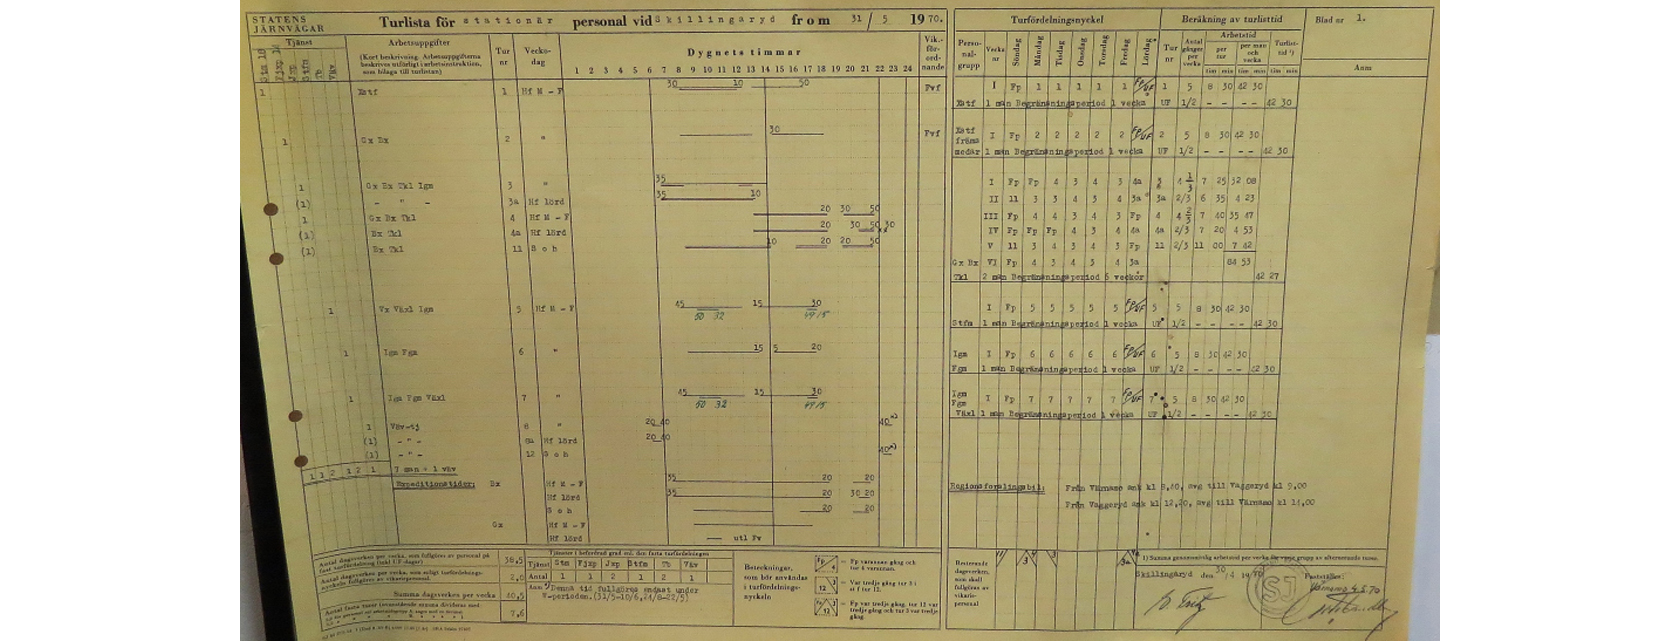 STATENS
JÄRNVÄGAR
Turlista för stationär personal vid Skillingaryd from 31/5 1970.
Tjänst
Arbetsuppgifter
(Kort beskrivning. Arbetsuppgifterna
beskrivas utförligt i arbetsinstruktion,
som bilaga till turlistan)
Tur
nr
Vecko-
dag
Dygnets timmar
1 2 3 4 5 6 7 8 9 10 11 12 13 14 15 16 17 18 19 20 21 22 23 24
Vik.-
för-
ord-
nande
1 Xstf 1 Hf M - F 30 10 50 Pvf
1 Gx Bx 2 " 30 Pvf
1 Gx Bx Tkl Igm 3 " 35
(1) - " - 3a Hf lörd 35 10
1 Gx Bx Tkl 4 Hf M - F 20 30 50
(1) Bx Tkl 4a Hf lörd 20 30 50 30
(1) Bx Tkl 11 S o h 10 20 20 50
1 Vx Växl Igm 5 Hf M - F 45 15 30
50 32 49 15
1 Igm Fgm 6 " 15 5 20
1 Igm Fgm Växl 7 " 45 15 30
50 32 49 15
1 Väv-tj 8 " 20 40 40
(1) - " - 8a Hf lörd 20 40
(1) - " - 12 S o h 40
1 1 2 1 2 1 7 man + 1 väv
Expeditionstider: Bx Hf M - F 35 20 20
Hf lörd 35 20 30 20
S o h 20 20
Gx Hf M - F
Hf lörd utl Fv
Antal dagsverken per vecka, som fullgöres av personal på
fast turfördelning (inkl UF-dagar) 38,5
Antal dagsverken per vecka, som enligt turfördelnings-
nyckeln fullgöres av vikariepersonal. 2,0
Summa dagsverken per vecka 40,5
7,6
Tjänster i befordrad grad enl. den fasta turfördelningen
Tjänst Stm Fjxp Jxp Stfm Tb Väv
Antal 1 1 2 1 2 1
Denna tid fullgöres endast under
Beteckningar,
som bör användas
i turfördelnings-
nyckeln
= Fp varannan gång och
tur 4 varannan.
= Var tredje gång tur 3 i
st f tur 12.
= Fp var tredje gång, tur 12 var
tredje gång och tur 3 var tredje
gång
Turfördelningsnyckel
Perso-
nal-
grupp
Vecka
nr
Söndag Måndag Tisdag Onsdag Torsdag Fredag Lördag
Beräkning av turlisttid
Tur
nr
Antal
gånger
per
vecka
Arbetstid
per
tur
per man
och
vecka
Turlist-
tid ¹)
tim min tim min tim min
Blad nr 1.
Anm
I Fp 1 1 1 1 1 Fp/UF 1 5 8 30 42 30
Xstf 1 man Begränsningsperiod 1 vecka UF 1/2 - - - - 42 30
Xstf
främs
medär
I Fp 2 2 2 2 2 Fp/UF 2 5 8 30 42 30
1 man Begränsningsperiod 1 vecka UF 1/2 - - - - 42 30
I Fp Fp 4 3 4 3 4a 3 4 1/3 7 25 32 08
II 11 3 3 4 3 4 3a 3a 2/3 6 35 4 23
III Fp 4 4 3 4 3 Fp 4 4 2/3 7 40 35 47
IV Fp Fp Fp 4 3 4 4a 4a 2/3 7 20 4 53
V 11 3 4 3 4 3 Fp 11 2/3 11 00 7 42
Gx Bx VI Fp 4 3 4 3 4 3a 84 53
Tkl 2 man Begränsningsperiod 6 veckor 42 27
I Fp 5 5 5 5 5 Fp/UF 5 5 8 30 42 30
Stfm 1 man Begränsningsperiod 1 vecka UF 1/2 - - - - 42 30
Igm I Fp 6 6 6 6 6 Fp/UF 6 5 8 30 42 30
Fgm 1 man Begränsningsperiod 1 vecka UF 1/2 - - - - 42 30
Igm
Fgm I Fp 7 7 7 7 7 Fp/UF 7 5 8 30 42 30
Växl 1 man Begränsningsperiod 1 vecka UF 1/2 - - - - 42 30
Från Värnamo ank kl 8,40, avg till Vaggeryd kl 9,00
Från Vaggeryd ank kl 12,20, avg till Värnamo kl 14,00
Resterande
dagsverken,
som skall
fullgöras
av vikarie-
personal
Skillingaryd den 30/4 1970
Fastställes:
SJ